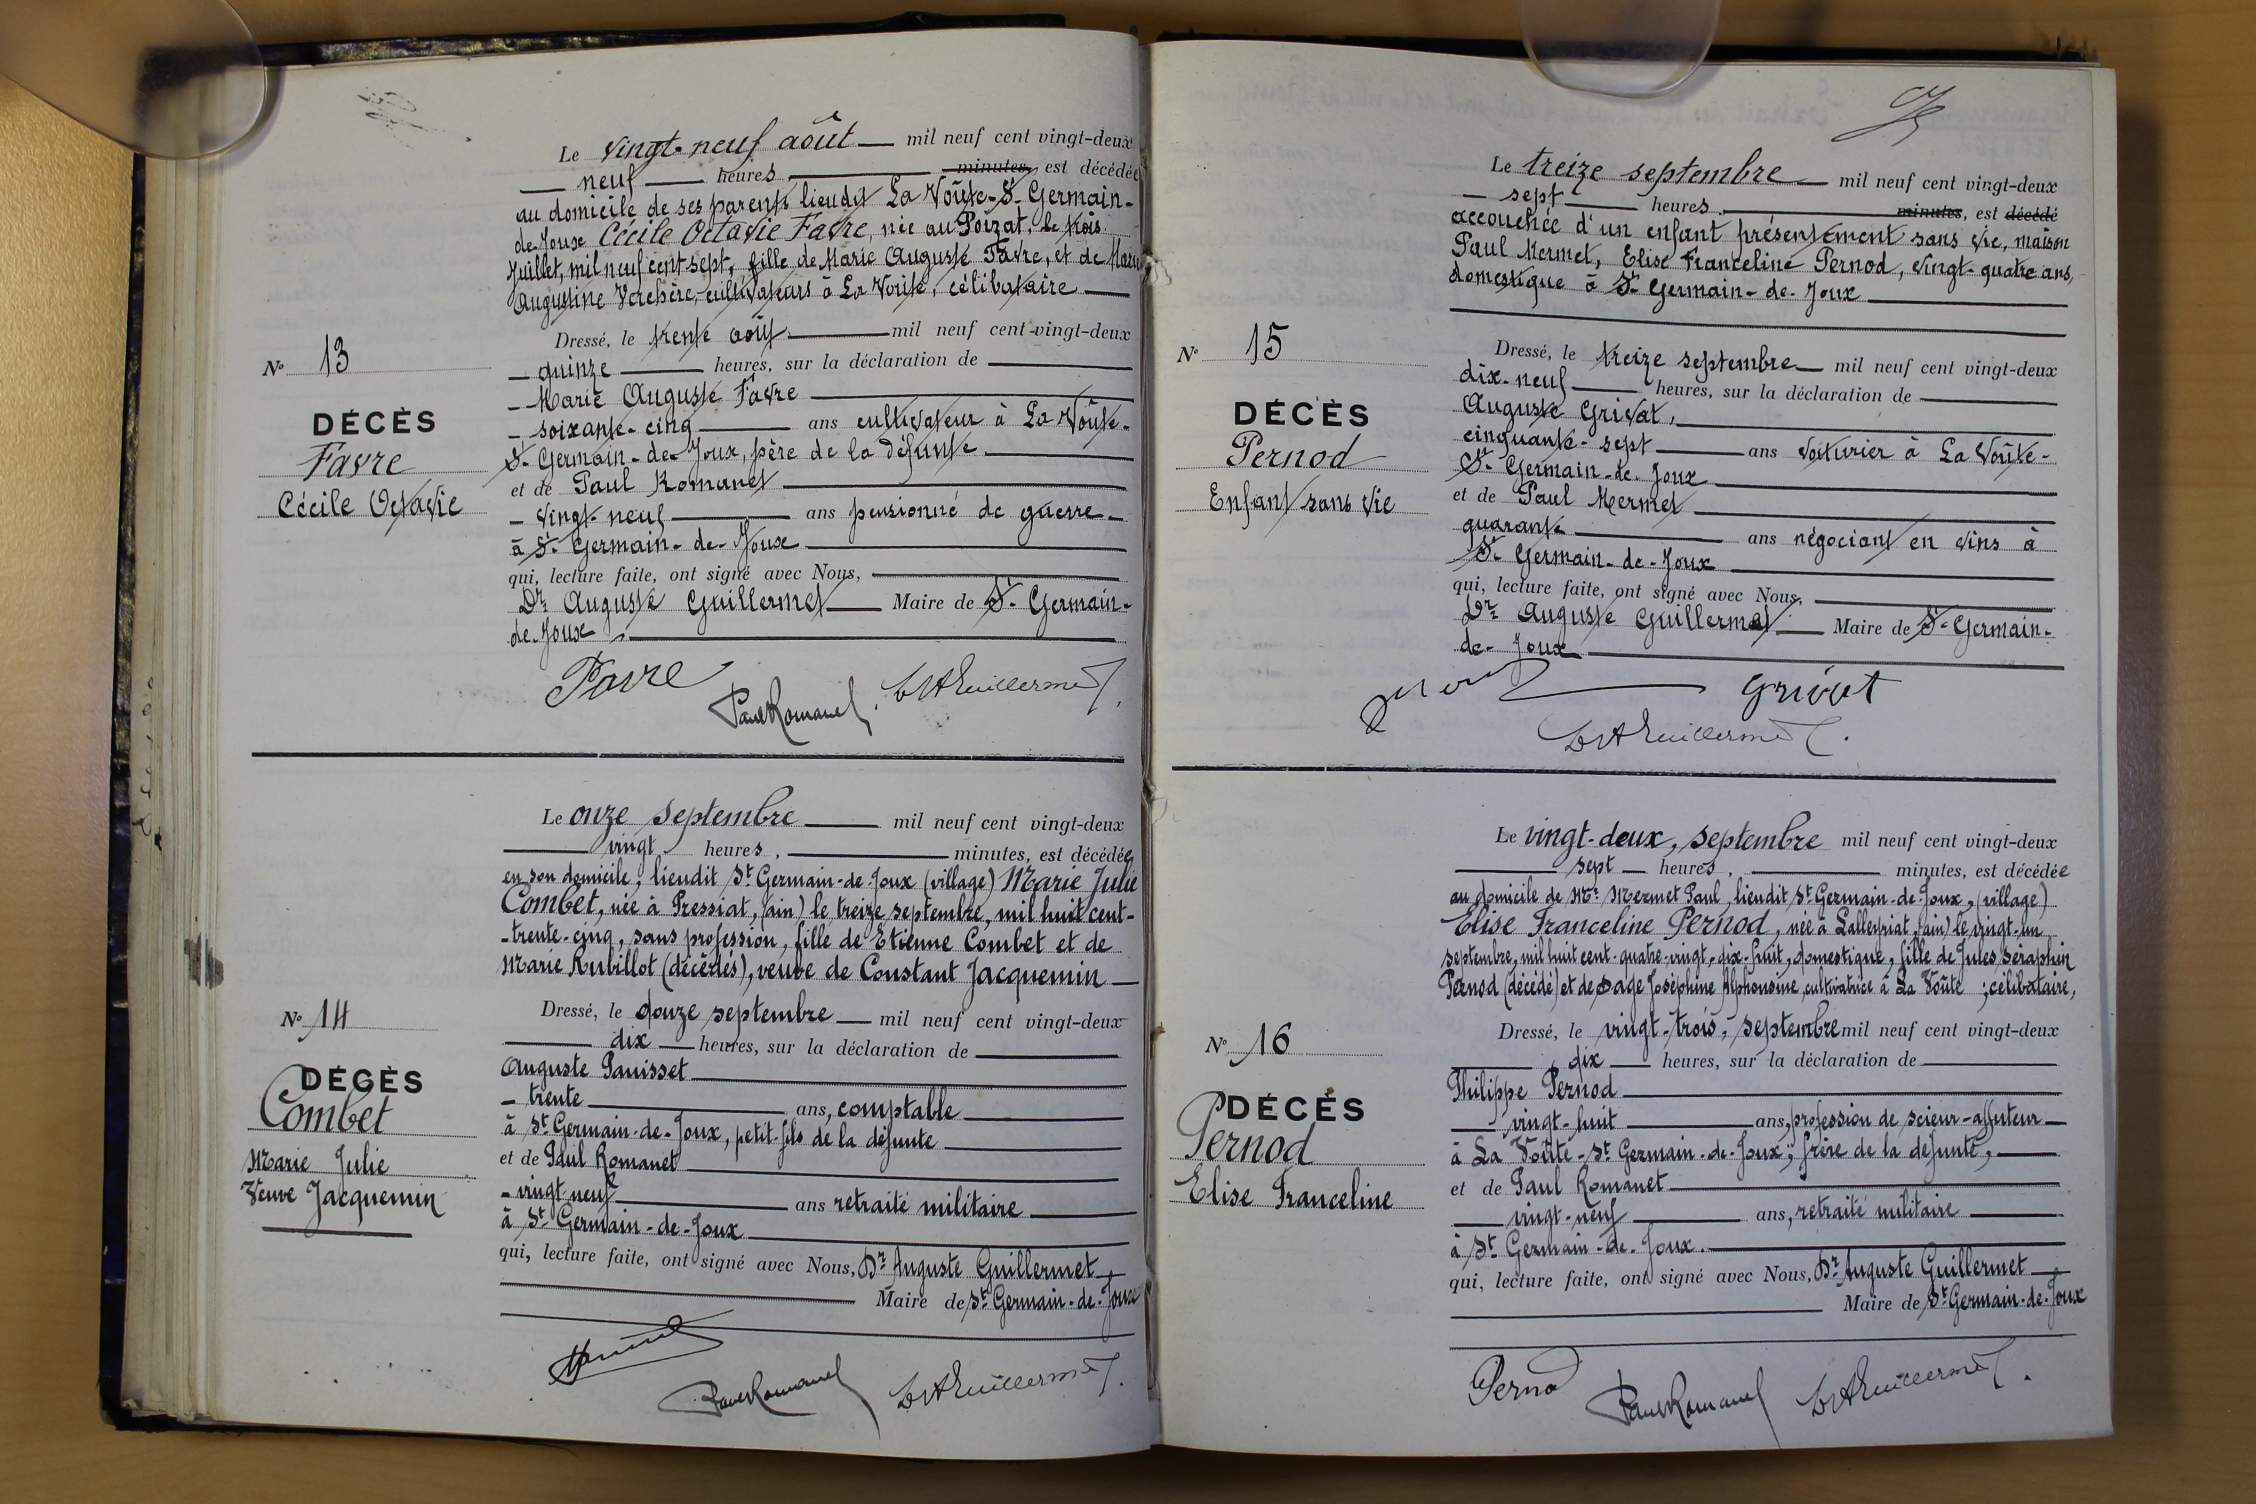 Le vingt-neuf août mil neuf cent vingt-deux
neuf heures minutes, est décédée
au domicile de ses parents lieudit La Voûte-St Germain-
de-Joux Cécile Octavie Favre, née au Poizat, le trois
Juillet, mil neuf cent sept, fille de Marie Auguste Favre, et de Marie
Augustine Verchère, cultivateurs à La Voûte, célibataire
Dressé, le trente août mil neuf cent vingt-deux
quinze heures, sur la déclaration de
Marie Auguste Favre
soixante-cinq ans cultivateur à La Voûte-
St Germain-de-Joux, père de la défunte
et de Paul Romanet
vingt-neuf ans pensionné de guerre
à St Germain-de-Joux
qui, lecture faite, ont signé avec Nous,
Dr Auguste Guillermet Maire de St Germain-
de-Joux.
Favre
Paul Romanet DrAGuillermet
No 13
DÉCÈS
Favre
Cécile Octavie
Le onze septembre mil neuf cent vingt-deux
vingt heures, minutes, est décédée
en son domicile, lieudit St Germain-de-Joux (village) Marie Julie
Combet, née à Pressiat, (ain) le treize septembre, mil huit cent-
-trente-cinq, sans profession, fille de Etienne Combet et de
Marie Rubillot (décédés), veuve de Constant Jacquemin
Dressé, le douze septembre mil neuf cent vingt-deux
dix heures, sur la déclaration de
Auguste Panisset
trente ans, comptable
à St Germain-de-Joux, petit-fils de la défunte
et de Paul Romanet
vingt-neuf ans retraité militaire
à St Germain-de-Joux
qui, lecture faite, ont signé avec Nous, Dr Auguste Guillermet
Maire de St Germain-de-Joux
Paul Romanet DrAGuillermet.
No 14
DÉCÈS
Combet
Marie Julie
Veuve Jacquemin
Le treize septembre mil neuf cent vingt-deux
sept heures minutes, est décédé
accouchée d'un enfant présentement sans vie, maison
Paul Mermet, Elise Franceline Pernod, vingt-quatre ans,
domestique à St Germain-de-Joux
Dressé, le treize septembre mil neuf cent vingt-deux
dix-neuf heures, sur la déclaration de
Auguste Grivat,
cinquante-sept ans voiturier à La Voûte-
St Germain-de-Joux
et de Paul Mermet
quarante ans négociant en vins à
St Germain-de-Joux
qui, lecture faite, ont signé avec Nous,
Dr Auguste Guillermet Maire de St Germain-
de-Joux
Grivat
DrAGuillermet.
No 15
DÉCÈS
Pernod
Enfant sans vie
Le vingt-deux, septembre mil neuf cent vingt-deux
sept heures, minutes, est décédée
au domicile de Mr Mermet Paul, lieudit St Germain-de-Joux, (village)
Elise Franceline Pernod, née à Lalleyriat, (ain) le vingt-un
septembre, mil huit cent-quatre-vingt-dix-huit, domestique, fille de Jules Séraphin
Pernod (décédé) et de Sage Joséphine Alphonsine, cultivatrice à La Voûte; célibataire,
Dressé, le vingt-trois, septembre mil neuf cent vingt-deux
dix heures, sur la déclaration de
Philippe Pernod
vingt-huit ans, profession de scieur-affuteur
à La Voûte-St Germain-de-Joux; frère de la défunte,
et de Paul Romanet
vingt-neuf ans, retraité militaire
à St Germain-de-Joux.
qui, lecture faite, ont signé avec Nous, Dr Auguste Guillermet
Maire de St Germain-de-Joux
Pernod Paul Romanet DrAGuillermet.
No 16
DÉCÈS
Pernod
Elise Franceline